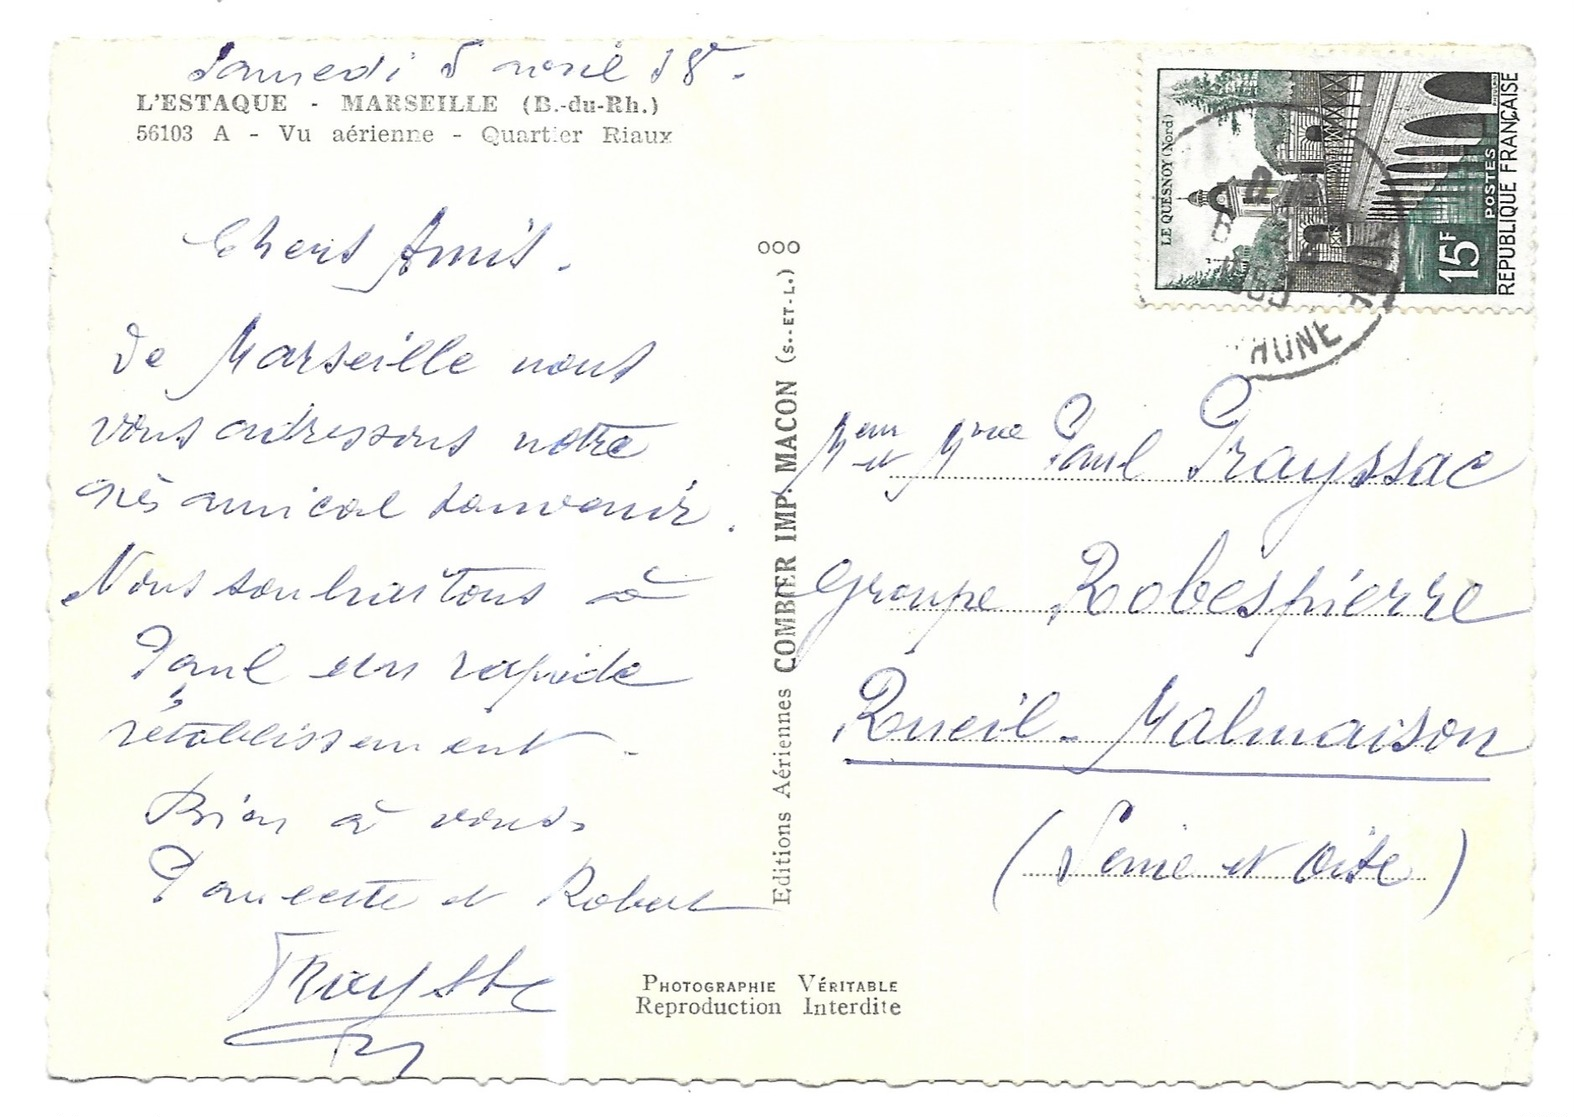 Samedi 5 avril 58.
L'ESTAQUE - MARSEILLE (B.-du-Rh.)
56103 A - Vu aérienne - Quartier Riaux
Chers Amis.
De Marseille nous
vous adressons notre
très amical souvenir.
Nous souhaitons à
Paul un rapide
rétablissement.
Bien à vous.
Paulette et Robert
ooo
Editions Aériennes COMBIER IMP. MACON (S.-ET-L.)
PHOTOGRAPHIE VÉRITABLE
Reproduction Interdite
LE QUESNOY (Nord)
15F
POSTES
REPUBLIQUE FRANÇAISE
Meur et Mme Paul Frayssac
Groupe Robespierre
Rueil-Malmaison
(Seine et Oise)